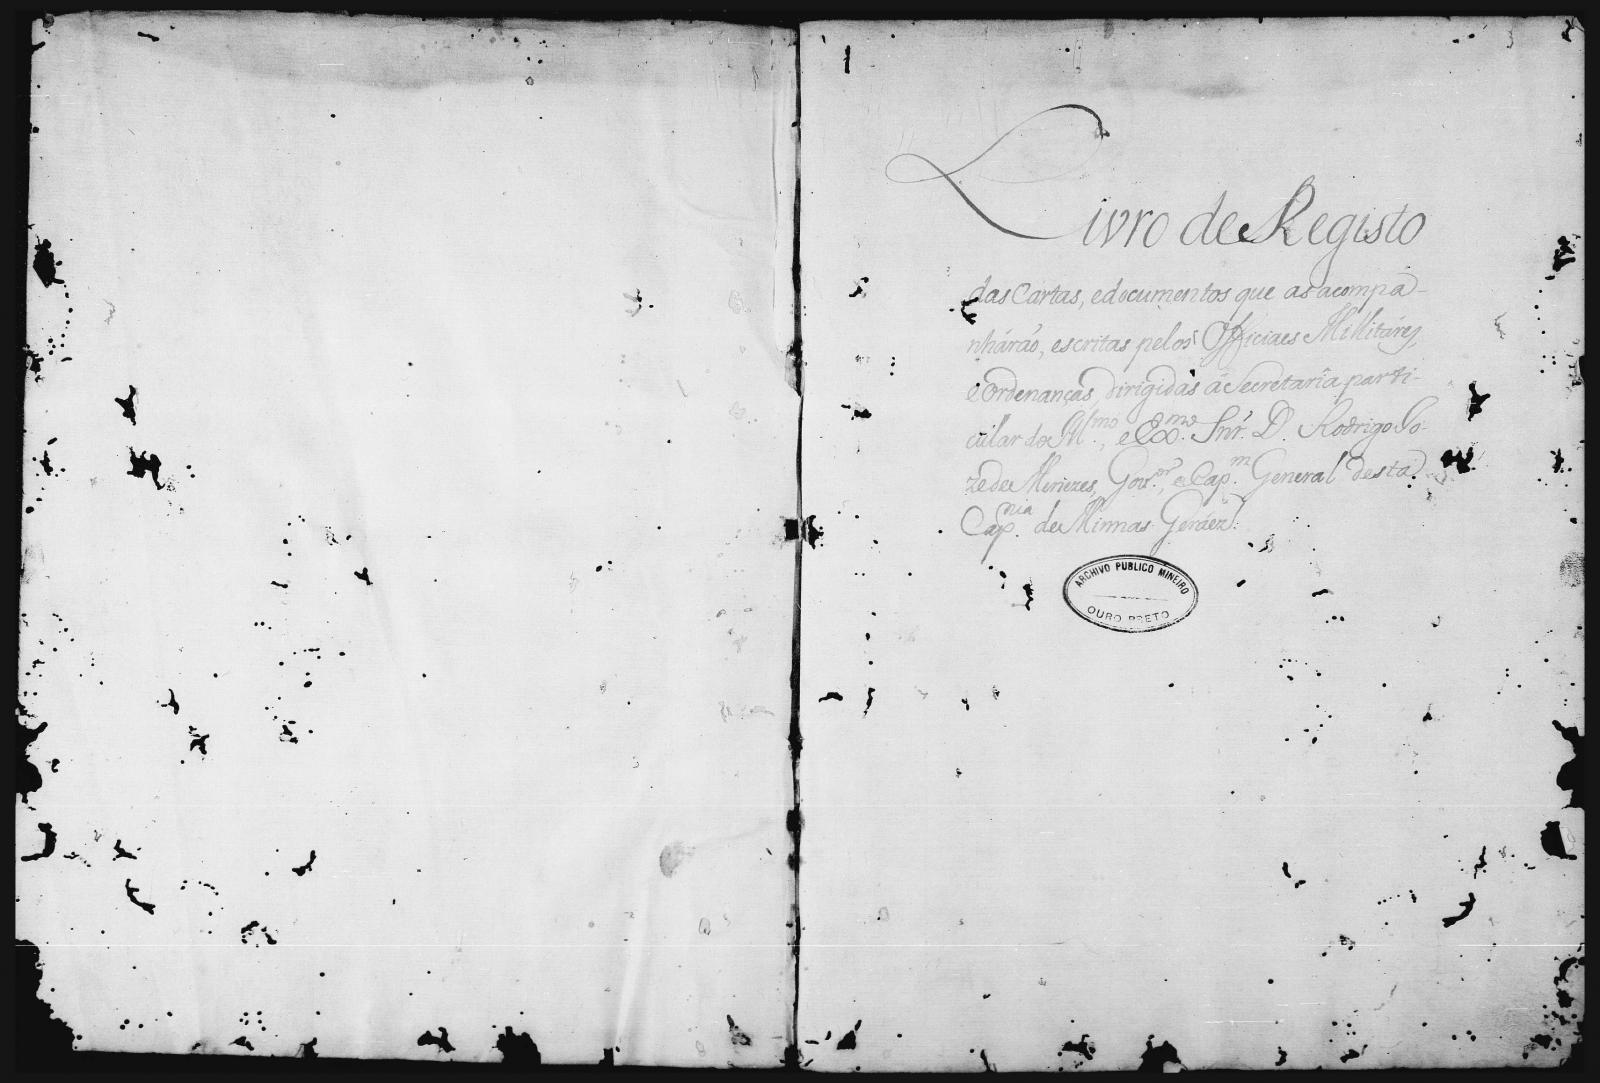 Livro de Registo
das Cartas, e documentos que as acompa-
nhárão, escritas pelos Officiaes Millitares,
e Ordenanças, dirigidas á Secretaria parti-
cular do Ill.mo, e Exmo. Snr. D. Rodrigo Jo-
ze de Menezes, Gov.or, e Cap.m General desta
Cap.nia de Minnas Geráez.
ARCHIVO PUBLICO MINEIRO
OURO PRETO